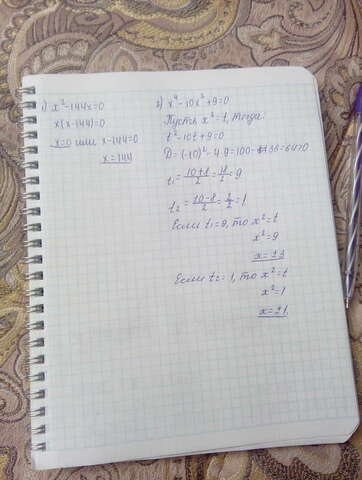 1) x²-144x=0
x(x-144)=0
x=0 или x-144=0
x=144
2) x⁴-10x²+9=0
Пусть x²=t, тогда:
t²-10t+9=0
D=(-10)²-4·9=100-36=64>0
t₁=(10+8)/2=18/2=9
t₂=(10-8)/2=2/2=1
Если t₁=9, то x²=t
x²=9
x=±3
Если t₂=1, то x²=t
x²=1
x=±1